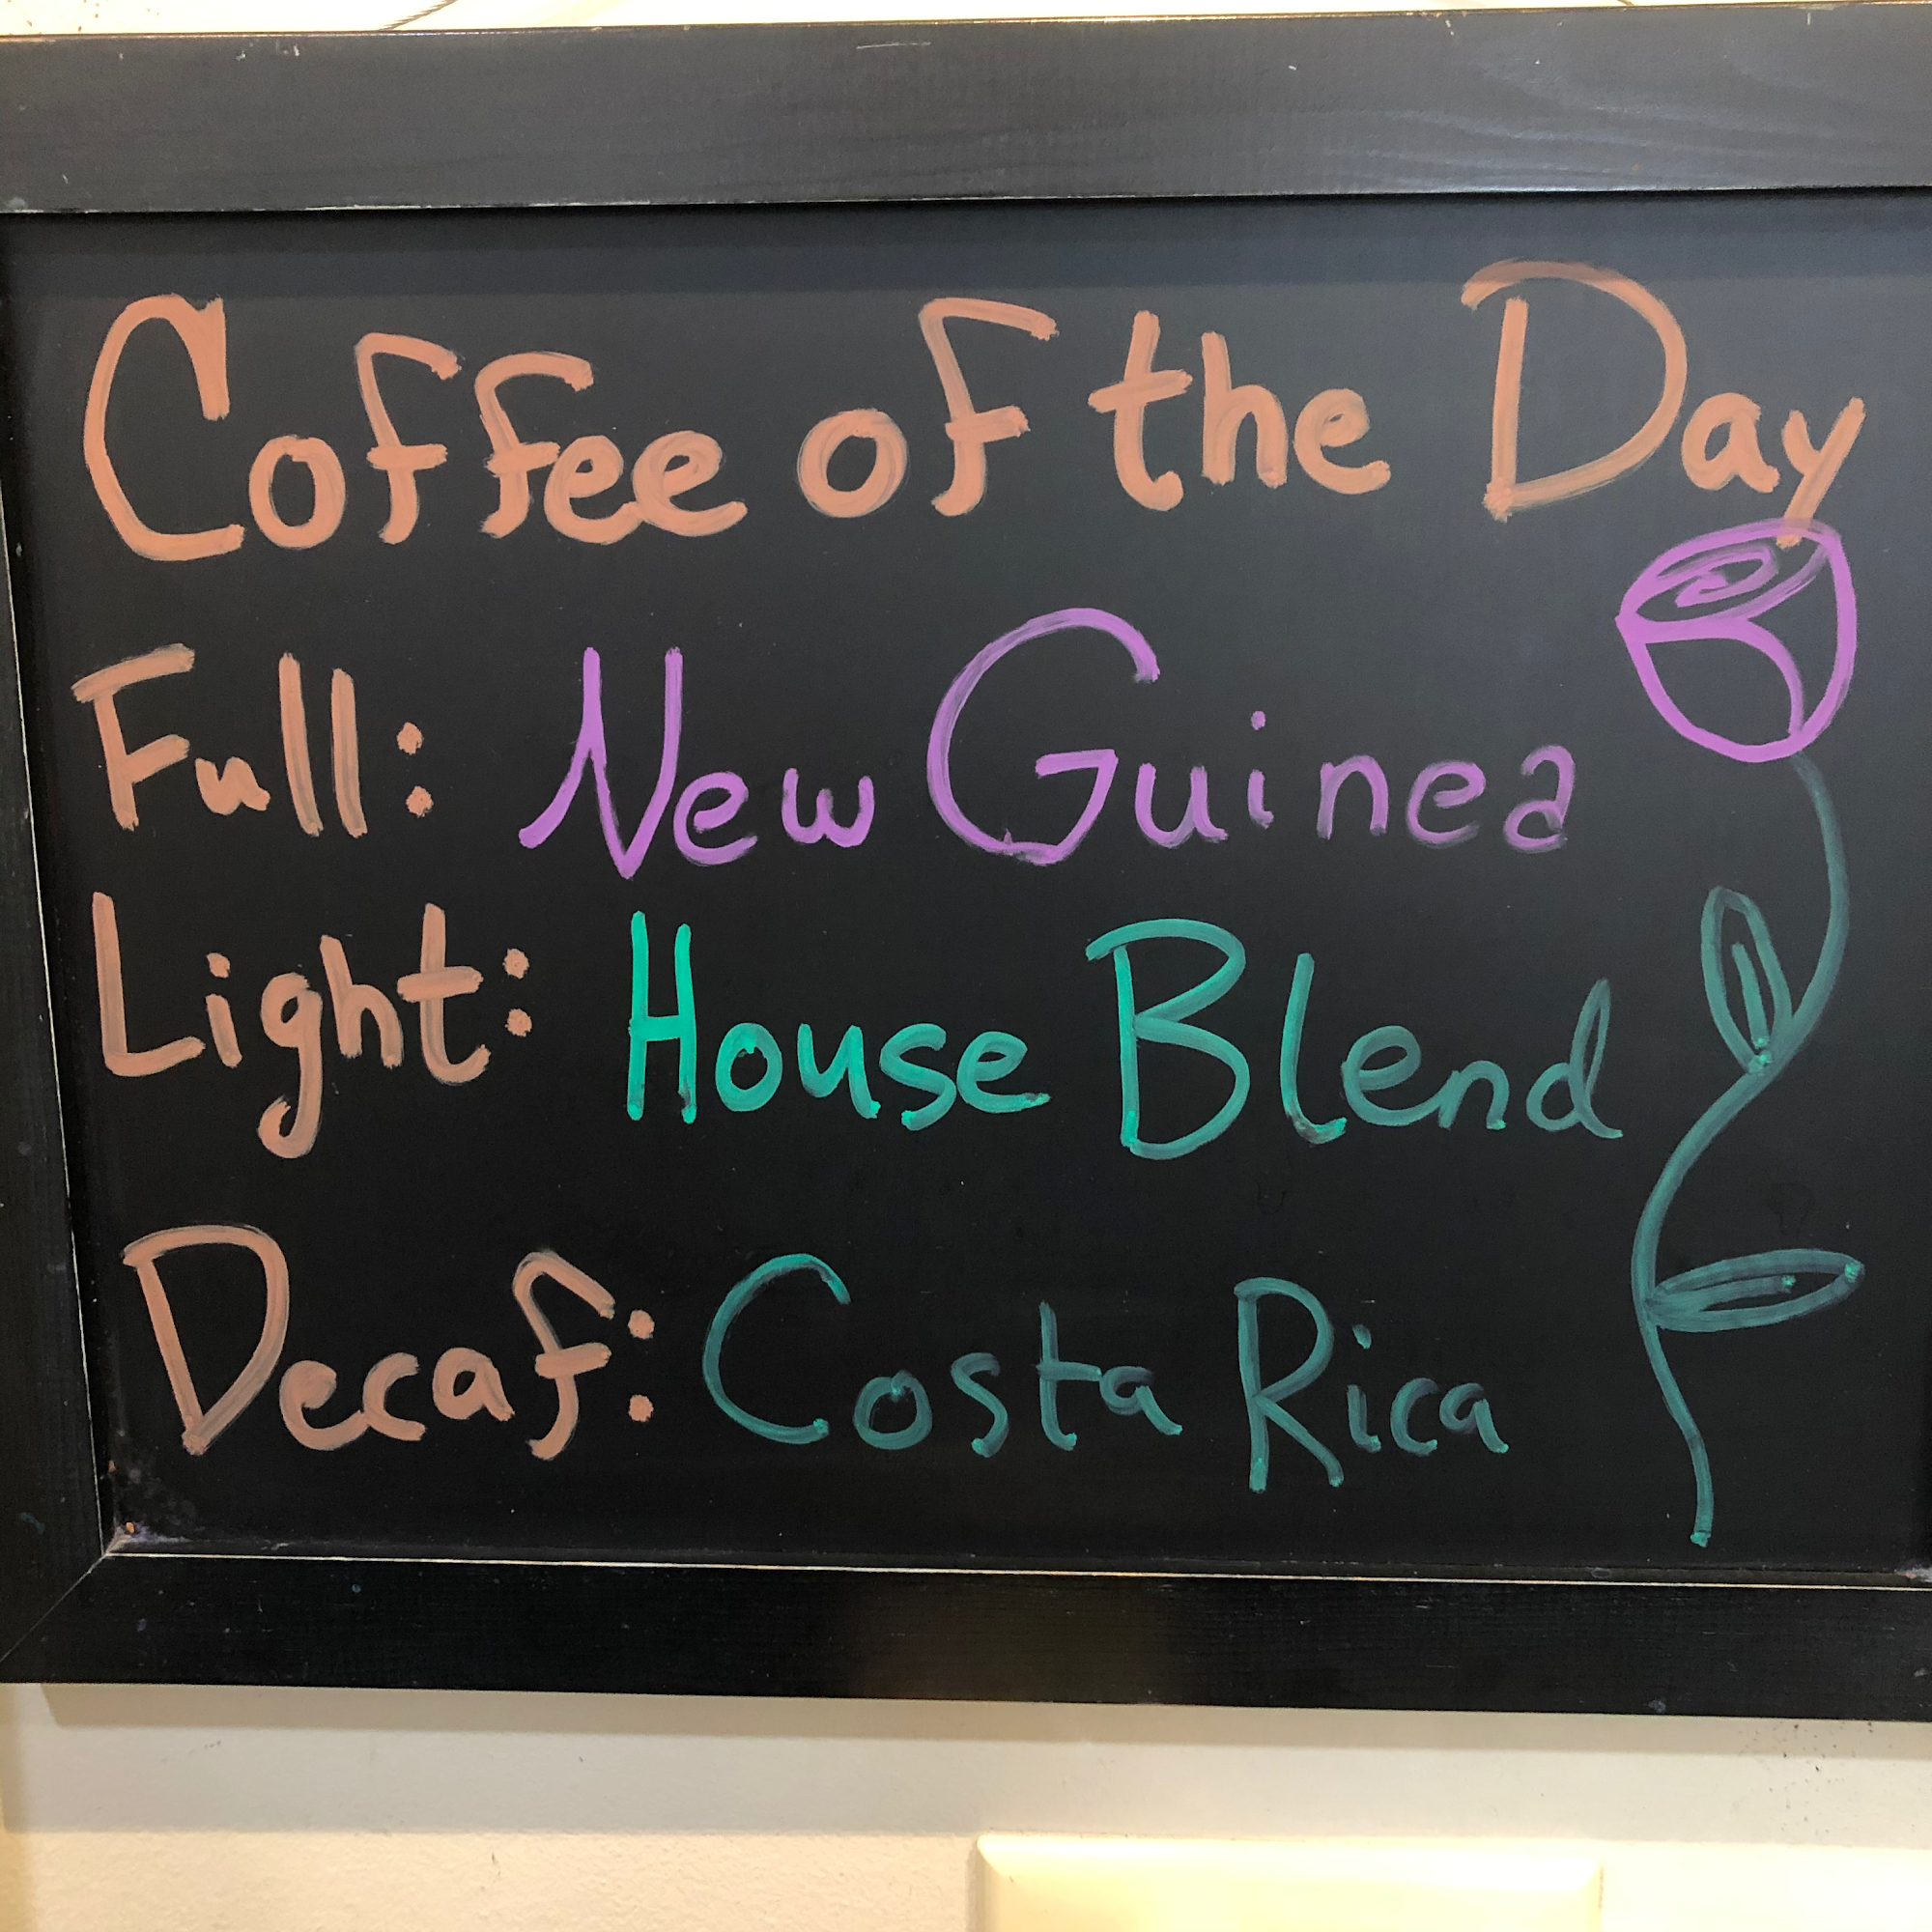 Coffee of the Day
Full: New Guinea
Light: House Blend
Decaf: Costa Rica